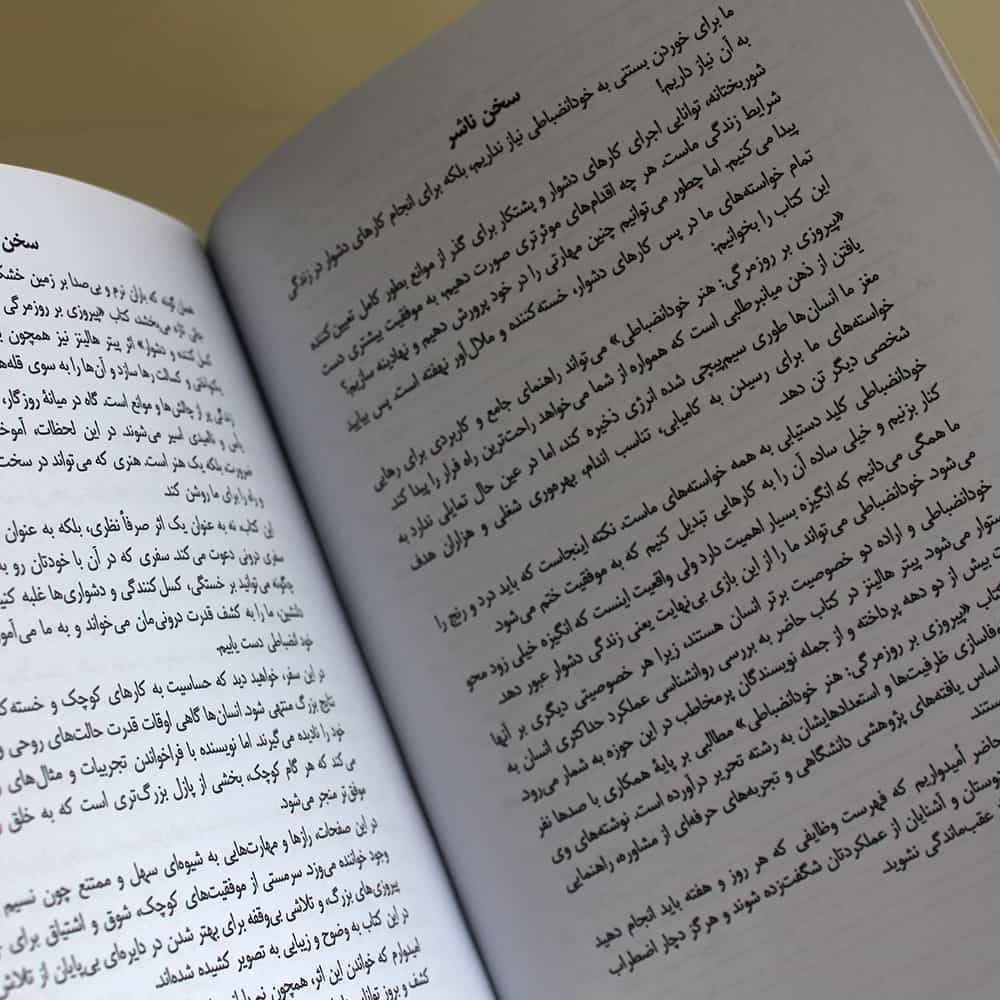 سخن ناشر
ما برای خوردن بستنی به خودانضباطی نیاز نداریم، بلکه برای انجام کارهای دشوار در زندگی
به آن نیاز داریم!
شوربختانه، توانایی اجرای کارهای دشوار و پشتکار برای گذر از موانع بطور کامل تعیین کننده
شرایط زندگی ماست. هر چه اقدام‌های موثرتری صورت دهیم، به موفقیت بیشتری دست
پیدا می‌کنیم. اما چطور می‌توانیم چنین مهارتی را در خود پرورش دهیم و نهادینه سازیم؟
تمام خواسته‌های ما در پس کارهای دشوار، خسته‌کننده و ملال‌آور نهفته است. پس بیایید
این کتاب را بخوانیم:
«پیروزی بر روزمرگی: هنر خودانضباطی» می‌تواند راهنمای جامع و کاربردی برای رهایی
یافتن از ذهن میانبرطلبی است که همواره از شما می‌خواهد راحت‌ترین راه فرار را پیدا کند
مغز ما انسان‌ها طوری سیم‌پیچی شده انرژی ذخیره کند، اما در عین حال تمایلی ندارد به
خواسته‌های ما برای رسیدن به کامیابی، تناسب اندام، بهره‌وری شغلی و هزاران هدف
شخصی دیگر تن دهد
خودانضباطی کلید دستیابی به همه خواسته‌های ماست. نکته اینجاست که باید درد و رنج را
کنار بزنیم و خیلی ساده آن را به کارهایی تبدیل کنیم که به موفقیت ختم می‌شود.
ما همگی می‌دانیم که انگیزه بسیار اهمیت دارد ولی واقعیت اینست که انگیزه خیلی زود محو
می‌شود. خودانضباطی می‌تواند ما را از این بازی بی‌نهایت یعنی زندگی دشوار عبور دهد
خودانضباطی و اراده دو خصوصیت برتر انسان هستند، زیرا هر خصوصیتی دیگری بر آنها
ستوار می‌شود. پیتر هالینز در کتاب حاضر به بررسی روانشناسی عملکرد حداکثری انسان به
ت بیش از دو دهه پرداخته و از جمله نویسندگان پرمخاطب در این حوزه به شمار می‌رود
کتاب «پیروزی بر روزمرگی: هنر خودانضباطی» مطالبی بر پایهٔ همکاری با صدها نفر
فاسازی ظرفیت‌ها و استعدادهایشان به رشته تحریر درآورده است. نوشته‌های وی
اساس یافته‌های پژوهشی دانشگاهی و تجربه‌های حرفه‌ای از مشاوره، راهنمایی
ستند.
حاضر اُمیدواریم که فهرست وظایفی که هر روز و هفته باید انجام دهید
وستان و آشنایان از عملکردتان شگفت‌زده شوند و هرگز دچار اضطراب
عقب‌ماندگی نشوید.
سخن
همان گونه که باران نرم و بی‌صدا بر زمین خشک
جانی تازه می‌بخشد، کتاب «پیروزی بر روزمرگی
کسل کننده و دشوار» اثر پیتر هالینز نیز همچون
یکنواختی و کسالت رها سازد و آن‌ها را به سوی قله‌ها
زندگی پر از چالش‌ها و موانع است. گاه در میانهٔ روزگار،
یأس و ناامیدی اسیر می‌شوند. در این لحظات، آموخ
ضرورت، بلکه یک هنر است. هنری که می‌تواند در سخت
و راه را برای ما روشن کند.
این کتاب، نه به عنوان یک اثر صرفاً نظری، بلکه به عنوان
سفری درونی دعوت می‌کند. سفری که در آن با خودتان رو به
چگونه می‌توانید بر خستگی، کسل کنندگی و دشواری‌ها غلبه کنی
دلنشین، ما را به کشف قدرت درونی‌مان می‌خواند و به ما می‌آمو
خود انضباطی دست یابیم.
در این سفر، خواهید دید که حساسیت به کارهای کوچک و خسته‌ک
نتایج بزرگ منتهی شود. انسان‌ها گاهی اوقات قدرت حالت‌های روحی و
خود را نادیده می‌گیرند. اما نویسنده با فراخواندن تجربیات و مثال‌های
می‌کند که هر گام کوچک، بخشی از پازل بزرگ‌تری است که به خلق
موفق‌تر منجر می‌شود.
در این صفحات، رازها و مهارت‌هایی به شیوه‌ای سهل و ممتنع چون نسیم
وجود خواننده می‌وزد. سرمستی از موفقیت‌های کوچک، شوق و اشتیاق برای
پیروزی‌های بزرگ، و تلاش بی‌وقفه برای بهتر شدن در دایره‌ای بی‌پایان از تلاش
در این کتاب به وضوح و زیبایی به تصویر کشیده شده‌اند.
امیدوارم که خواندن این اثر، همچون
کشف و بروز